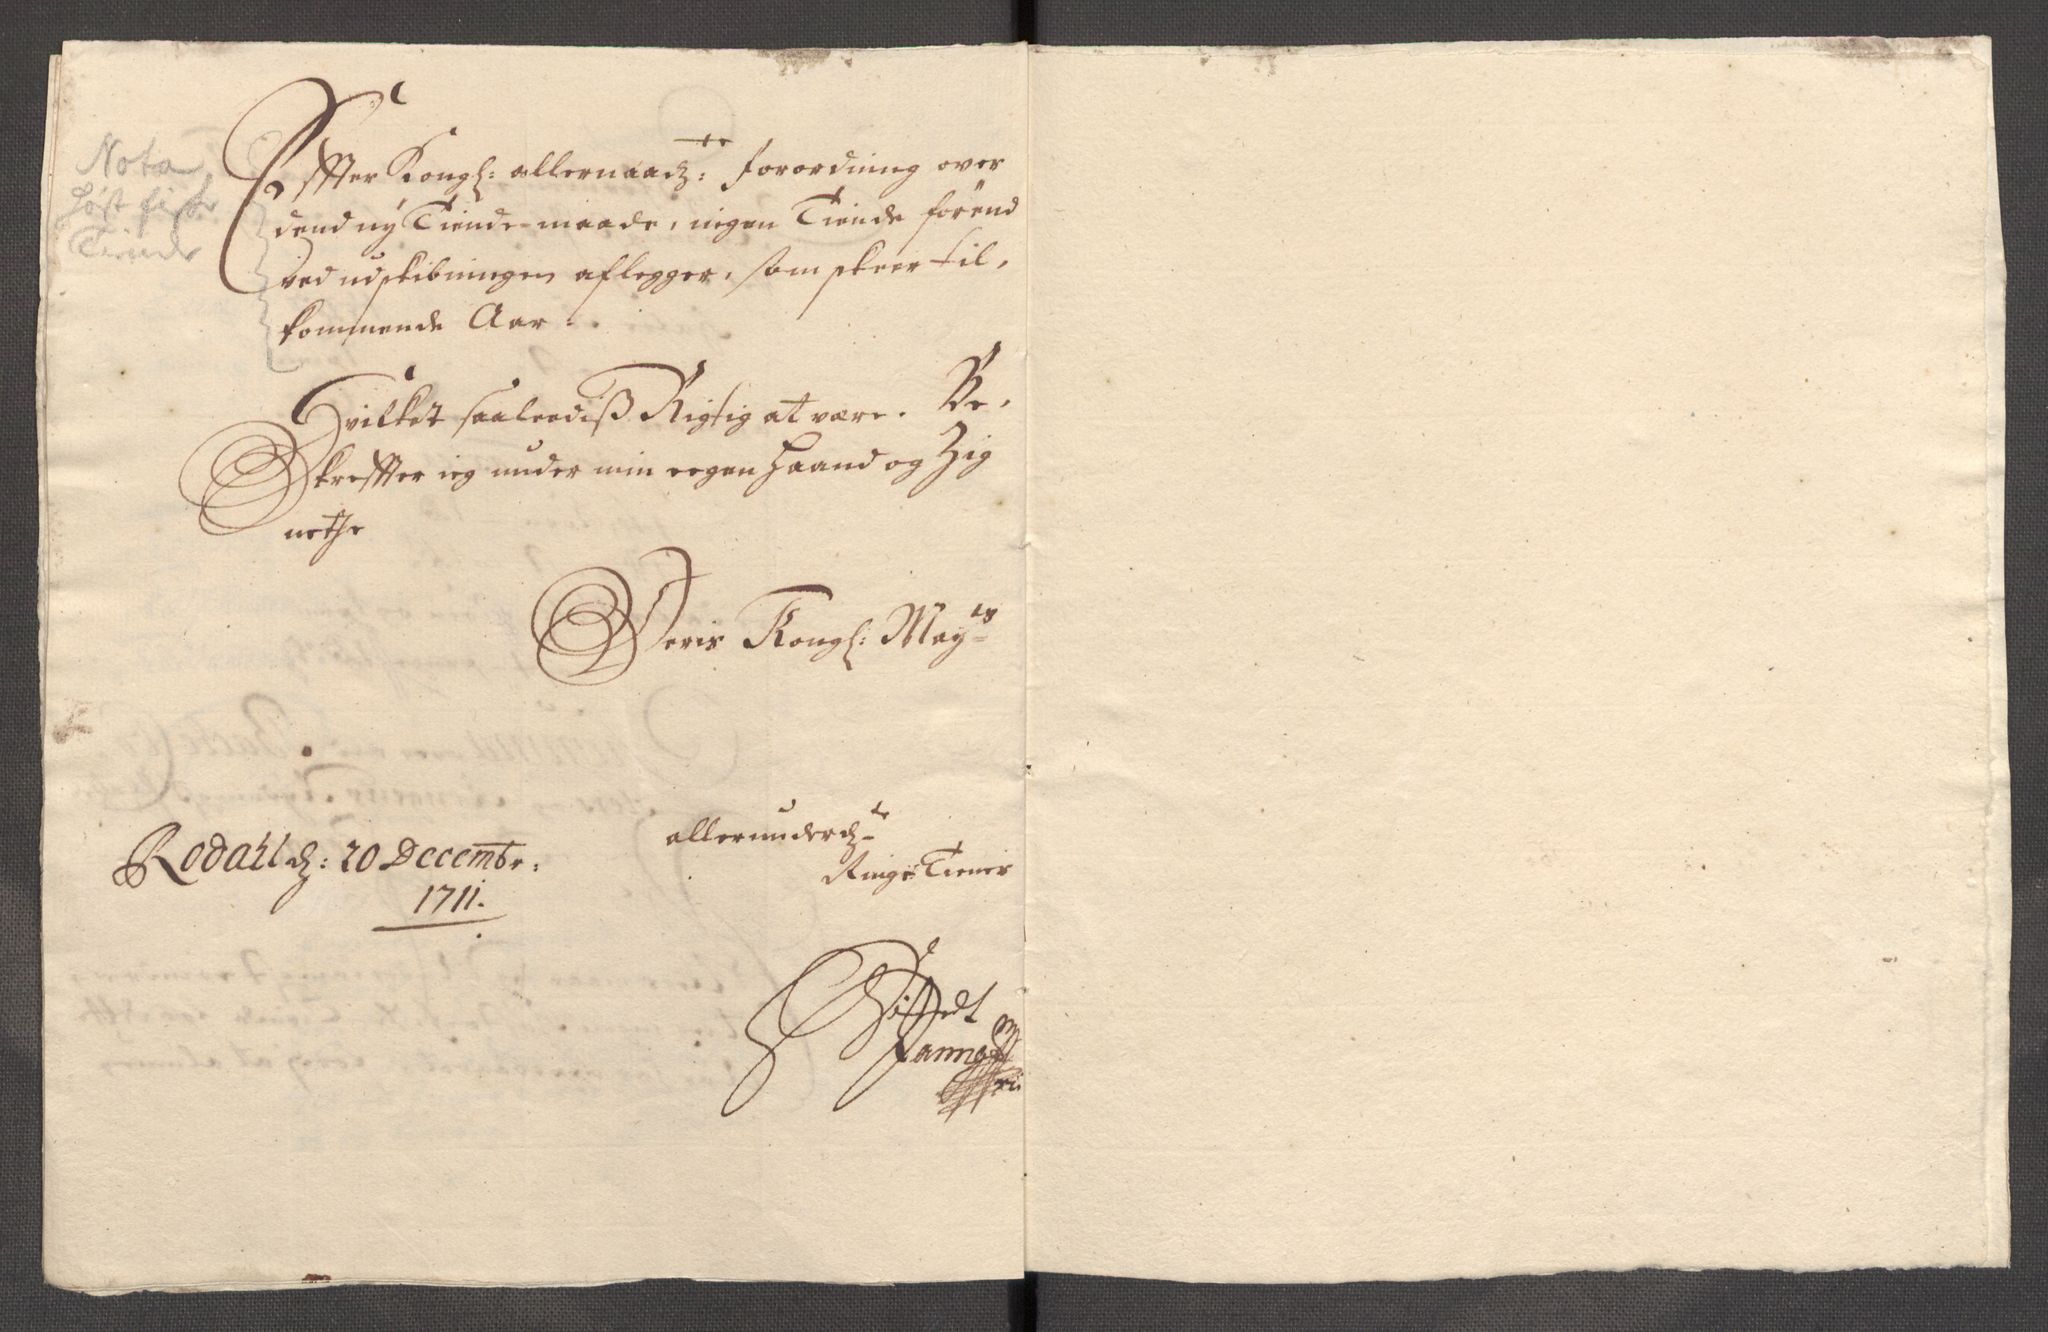 Nota
Høst fiske
Tiende
Effter Kongl: allernaadh:ste forordning over
dend ny Tiende-maade, ingen Tiende forend
ved udskibningen aflegger, som skeer til,
kommende Aar:
Hvilket saaleediß Rigtig at være. Be,
krefter ieg under min eegen Haand og Zig
nethe
Deris Kongl: May:ts
allerunderd:te
Ringe Tiener
Rodahl d: 20 Decembr:
1711.